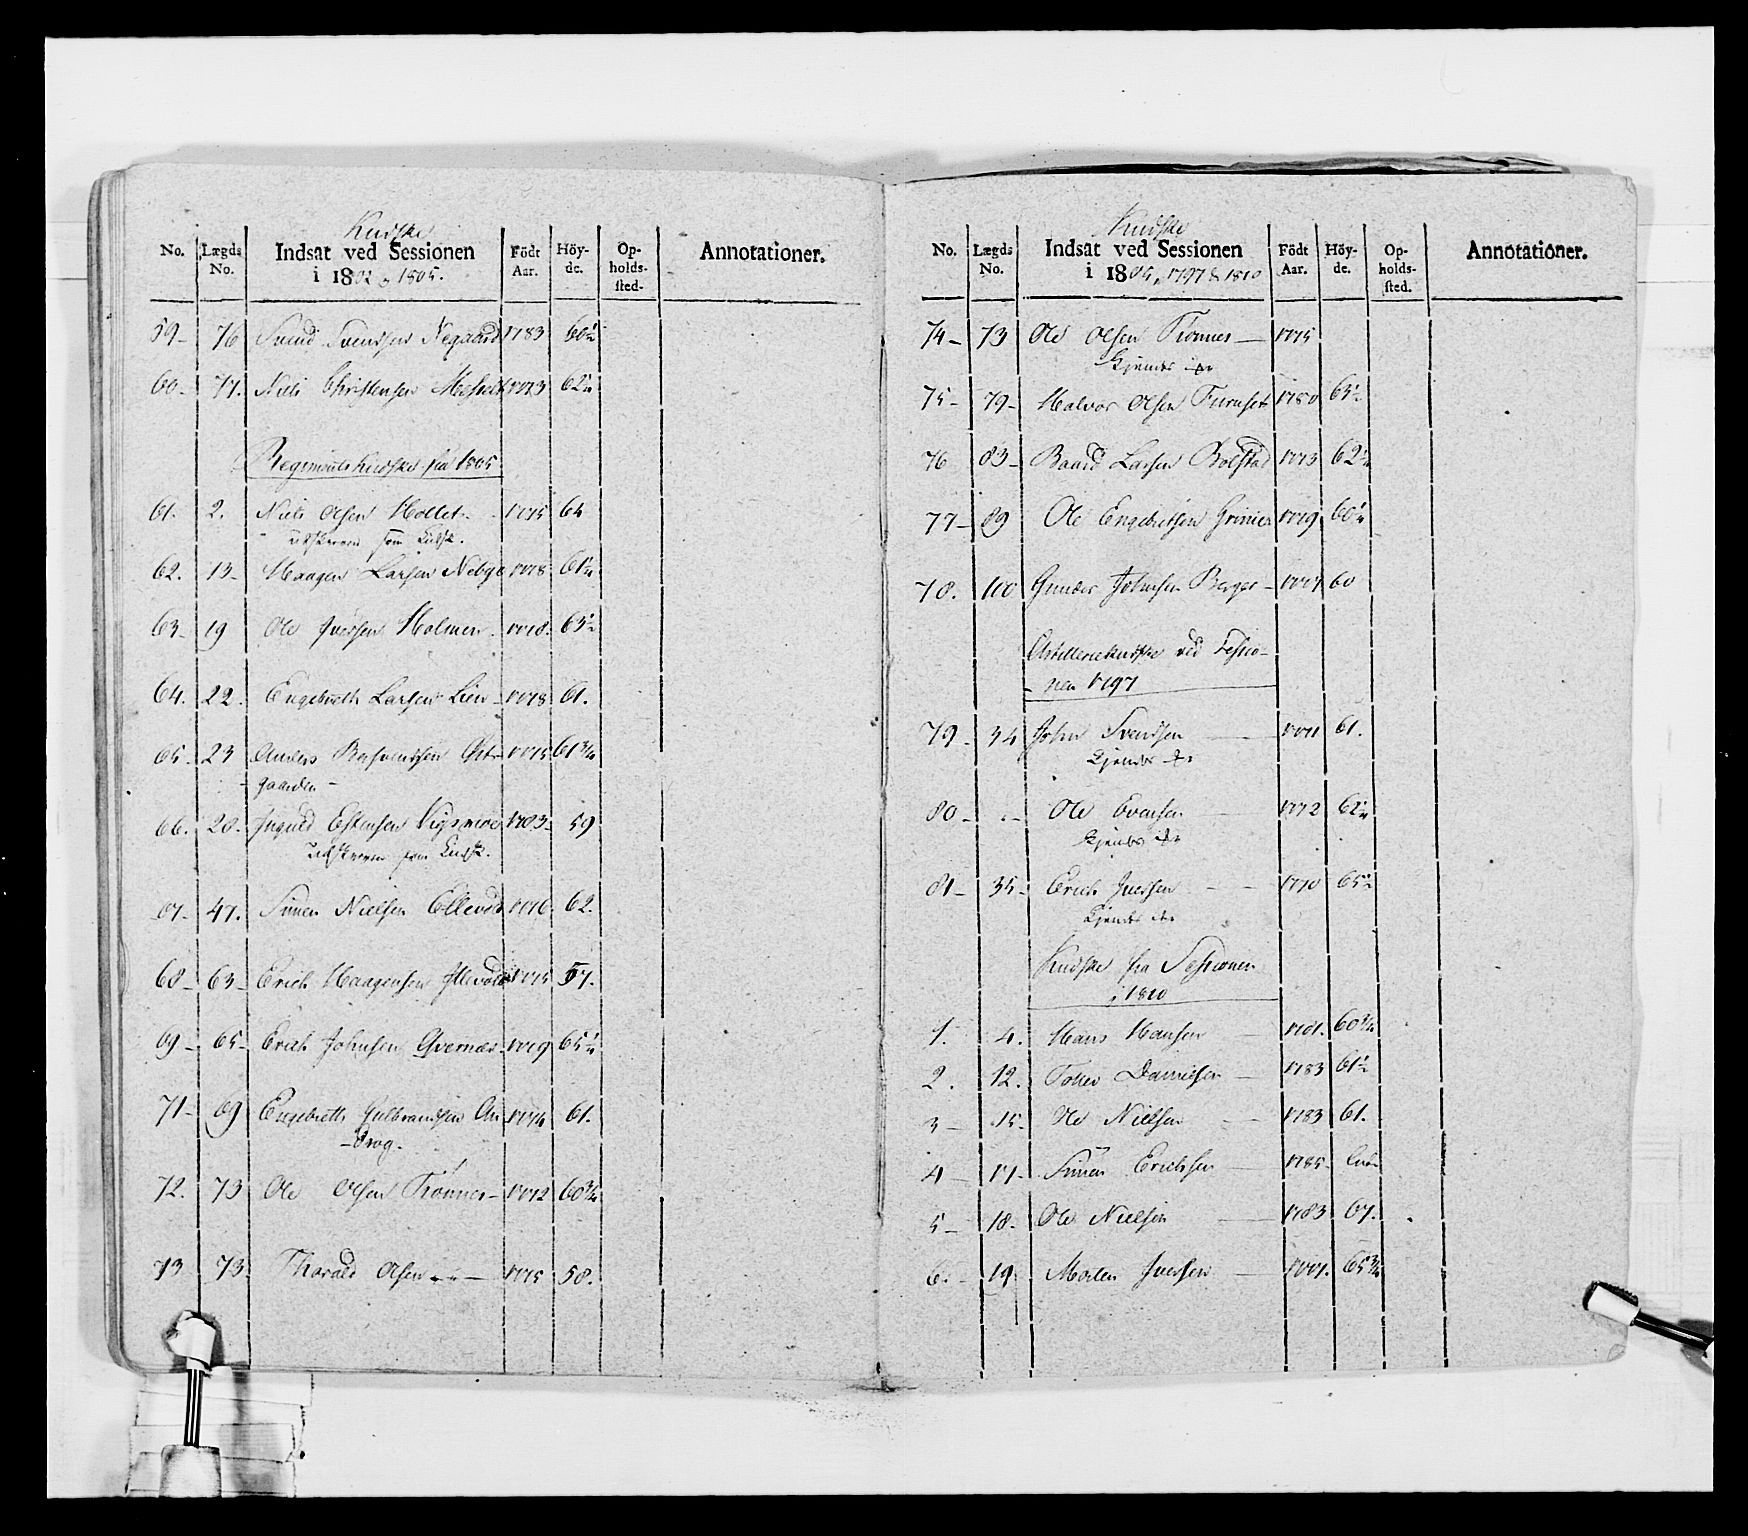 Kudske
No. Lægds No. Indsat ved Sessionen i 1802 & 1805. Födt Aar. Höyde. Opholdssted. Annotationer.
59- 76 Svend Svendsen Negaard 1783 60½
60- 77. Niels Christensen 1773 62¼
Regimentskudske fra 1805
61. 2. Niels Olsen Mollet 1775 64
udskreven som Kudsk.
62. 13- Haagen Larsen Nebye 1778 61¼
63- 19 Ole Iversen Holmen 1778. 63½
64. 22. Engebreth Larsen Lien 1778 61.
65. 23 Anders 1775 61¾
gaarden
66. 28. Estensen 1783- 59
udskreven som Kudsk.
67- 47. Simen Nielsen 1776 62.
68- 63- Erich Haagensen 1775 57.
69- 65- Erich Johnsen Qvernæs 1779 65¼
71- 69 Engebreth Gulbrandsen An 1774 61.
-drog.
72. 73 Ole Olsen Trønnes 1772 60¾
73 73. Tharald Olsen 1775 58.
Kudske
No. Lægds No. Indsat ved Sessionen i 1805, 1797 & 1810 Födt Aar. Höyde. Opholdssted. Annotationer.
74- 73 Ole Olsen Trønnes 1775
Kjendes ikke
75- 79- Halvor Olsen Furuset 1780 63½
76 83- Baard Larsen Bolstad 1773 62½
77- 89 Ole Engebretsen 1779 60¼
78. 100 Gunder Johnsen Berger 1777 60
Artilleriekudske ved Sessio-
nen 1797
79- 34 John Svendsen 1771 61.
Kjendes ikke
80- Ole Evensen 1772 62¼
Kjendes ikke
81- 35- Erich Iversen 1770 65½
Kjendes ikke
Kudske fra Sessionen
i 1810
1. 4. Hans Hansen 1781. 60¾
2. 12. Danielsen 1783 61½
3- 15- Ole Nielsen 1783 61.
4- 17- Simen Erichsen 1785-
5- 18. Ole Nielsen 1783 67.
6.- 19 Morten Iversen 1777. 65¾